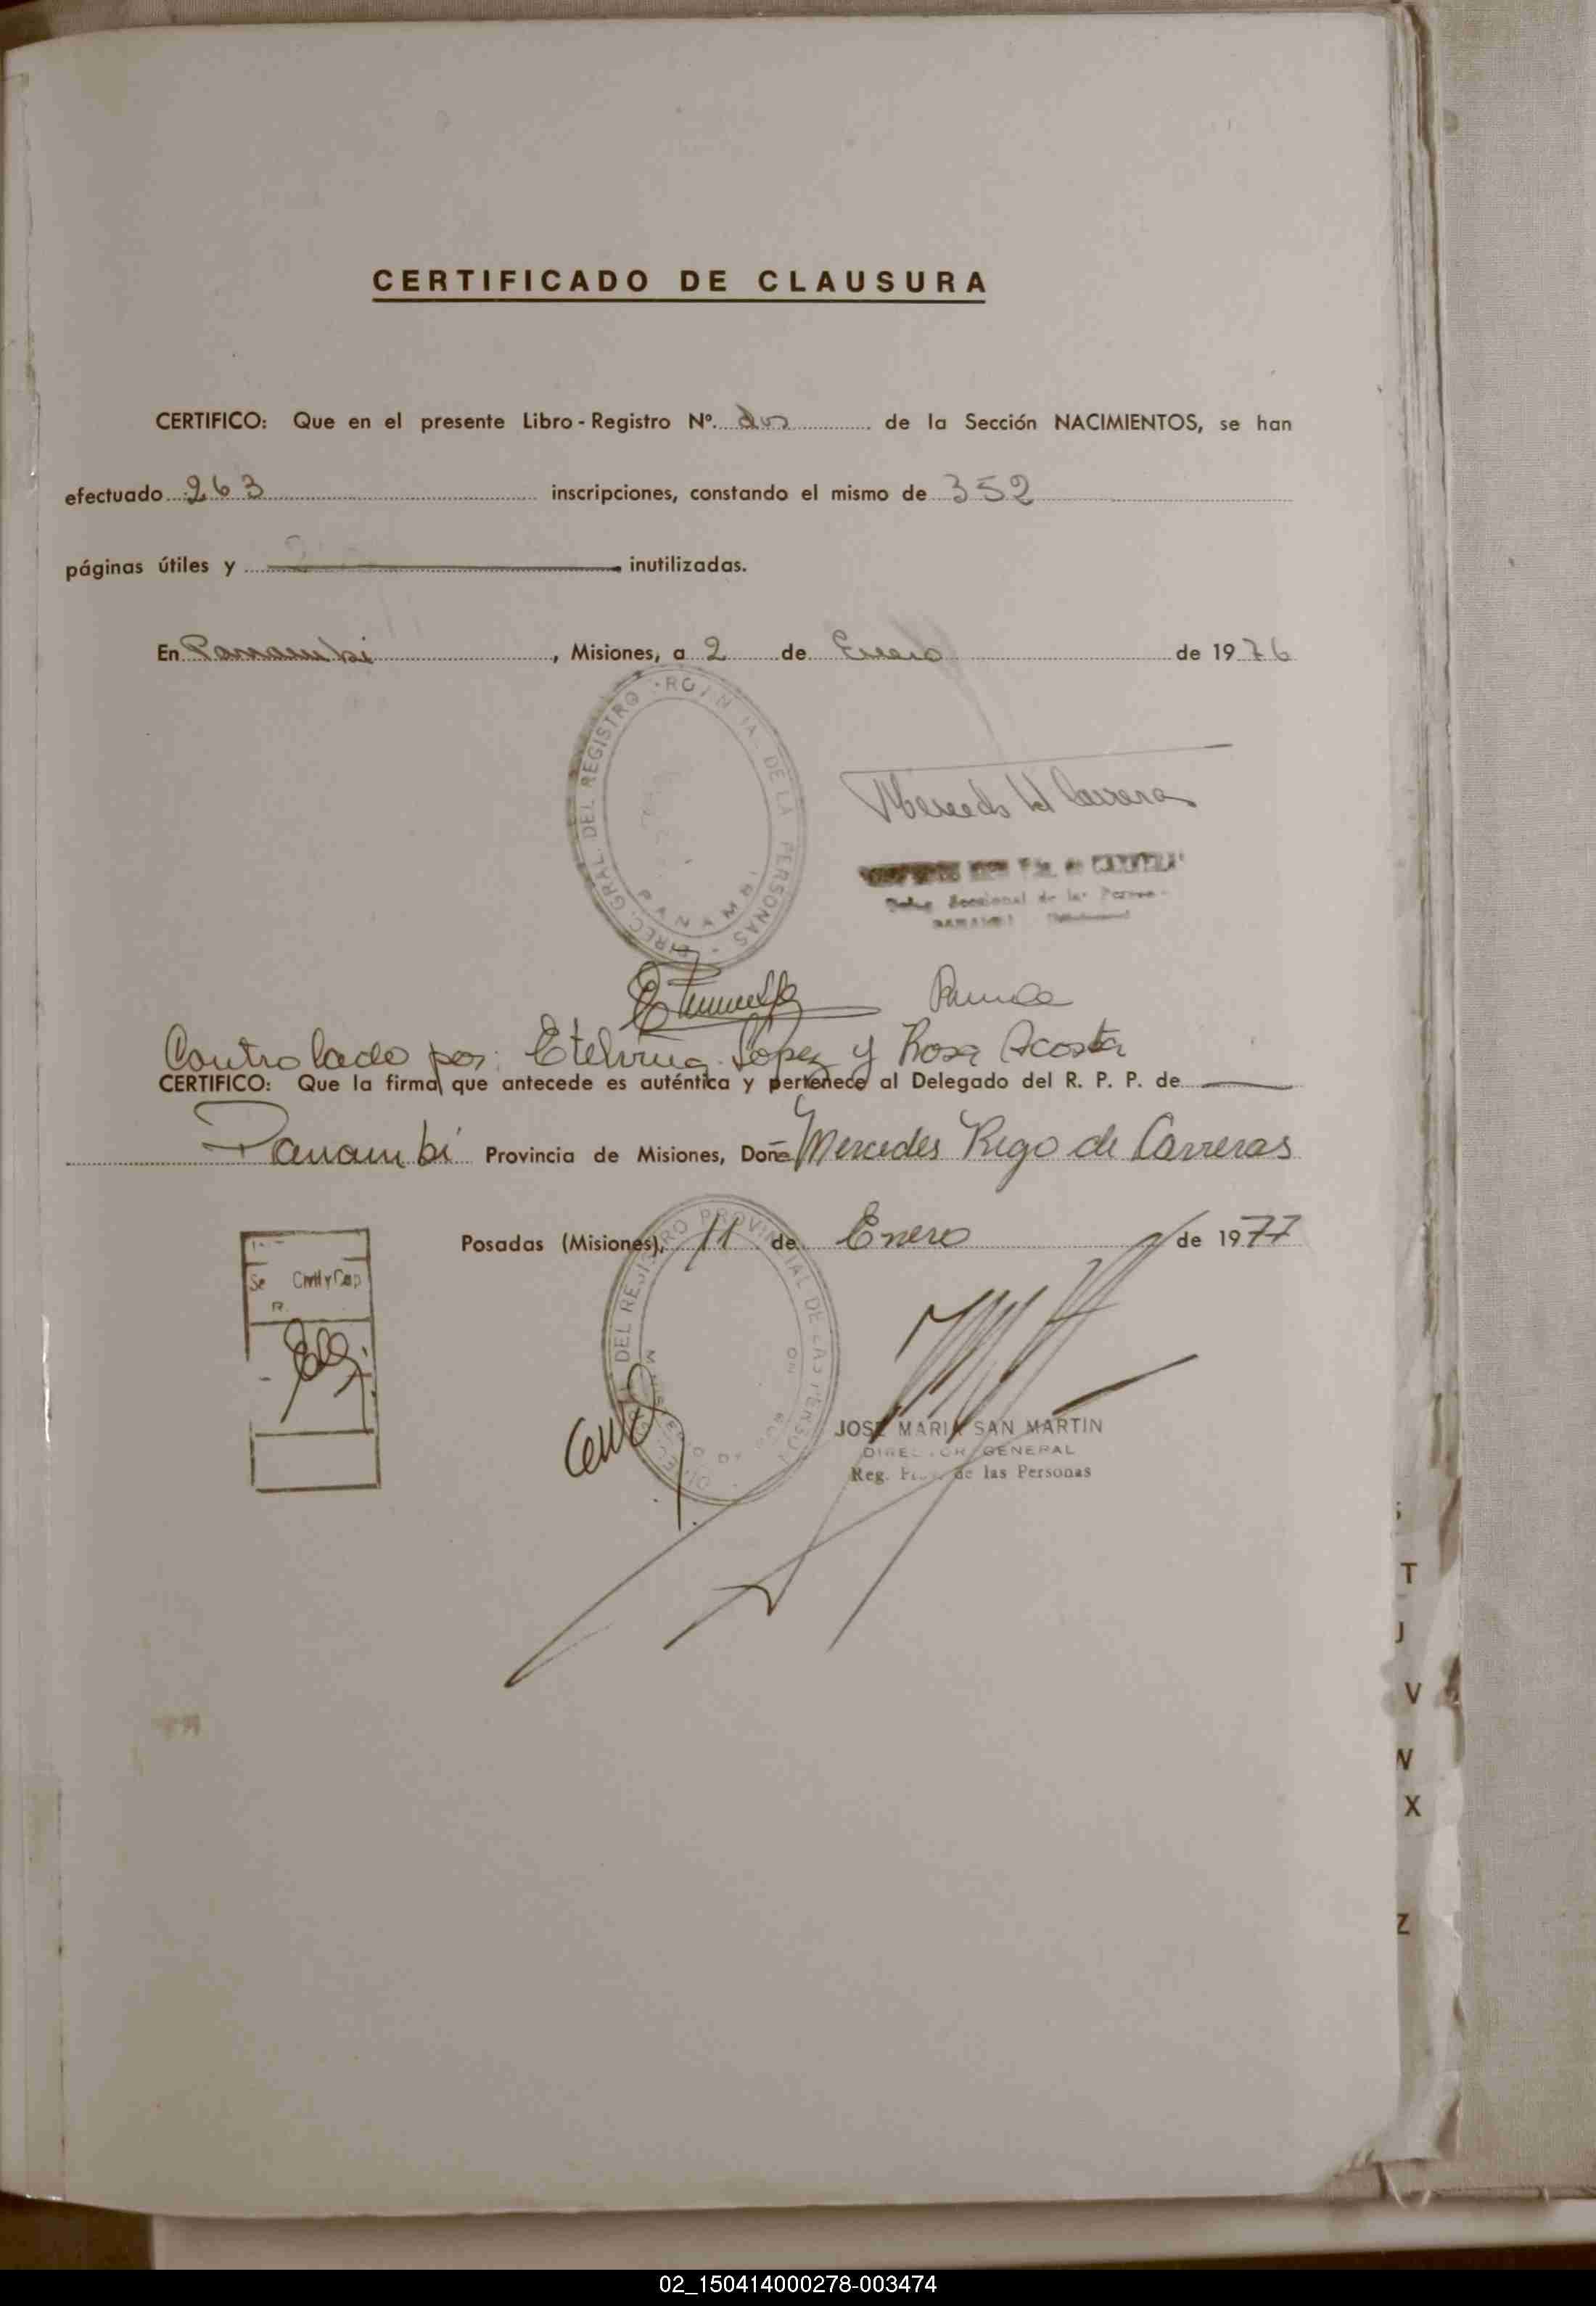 CERTIFICADO DE CLAUSURA
CERTIFICO: Que en el presente Libro-Registro Nº. dos de la Sección NACIMIENTOS, se han
efectuado 263 inscripciones, constando el mismo de 352
páginas útiles y inutilizadas.
En Panambi, Misiones, a 2 de Enero de 1976
DIREC. GRAL. DEL REGISTRO DE LA PERSONAS
PANAMBI
Controlado por: Etelvina Lopez y Rosa Acosta
CERTIFICO: Que la firma que antecede es auténtica y pertenece al Delegado del R. P. P. de
Panambi Provincia de Misiones, Doña Mercedes Rigo de Carreras
Posadas (Misiones), 11 de Enero de 1977
DEL REGISTRO PROVINCIAL DE LAS PERSONAS
Civil y Cap
JOSE MARIA SAN MARTIN
DIRECTOR GENERAL
Reg. de las Personas
T
U
V
W
X
Z
02_150414000278-003474